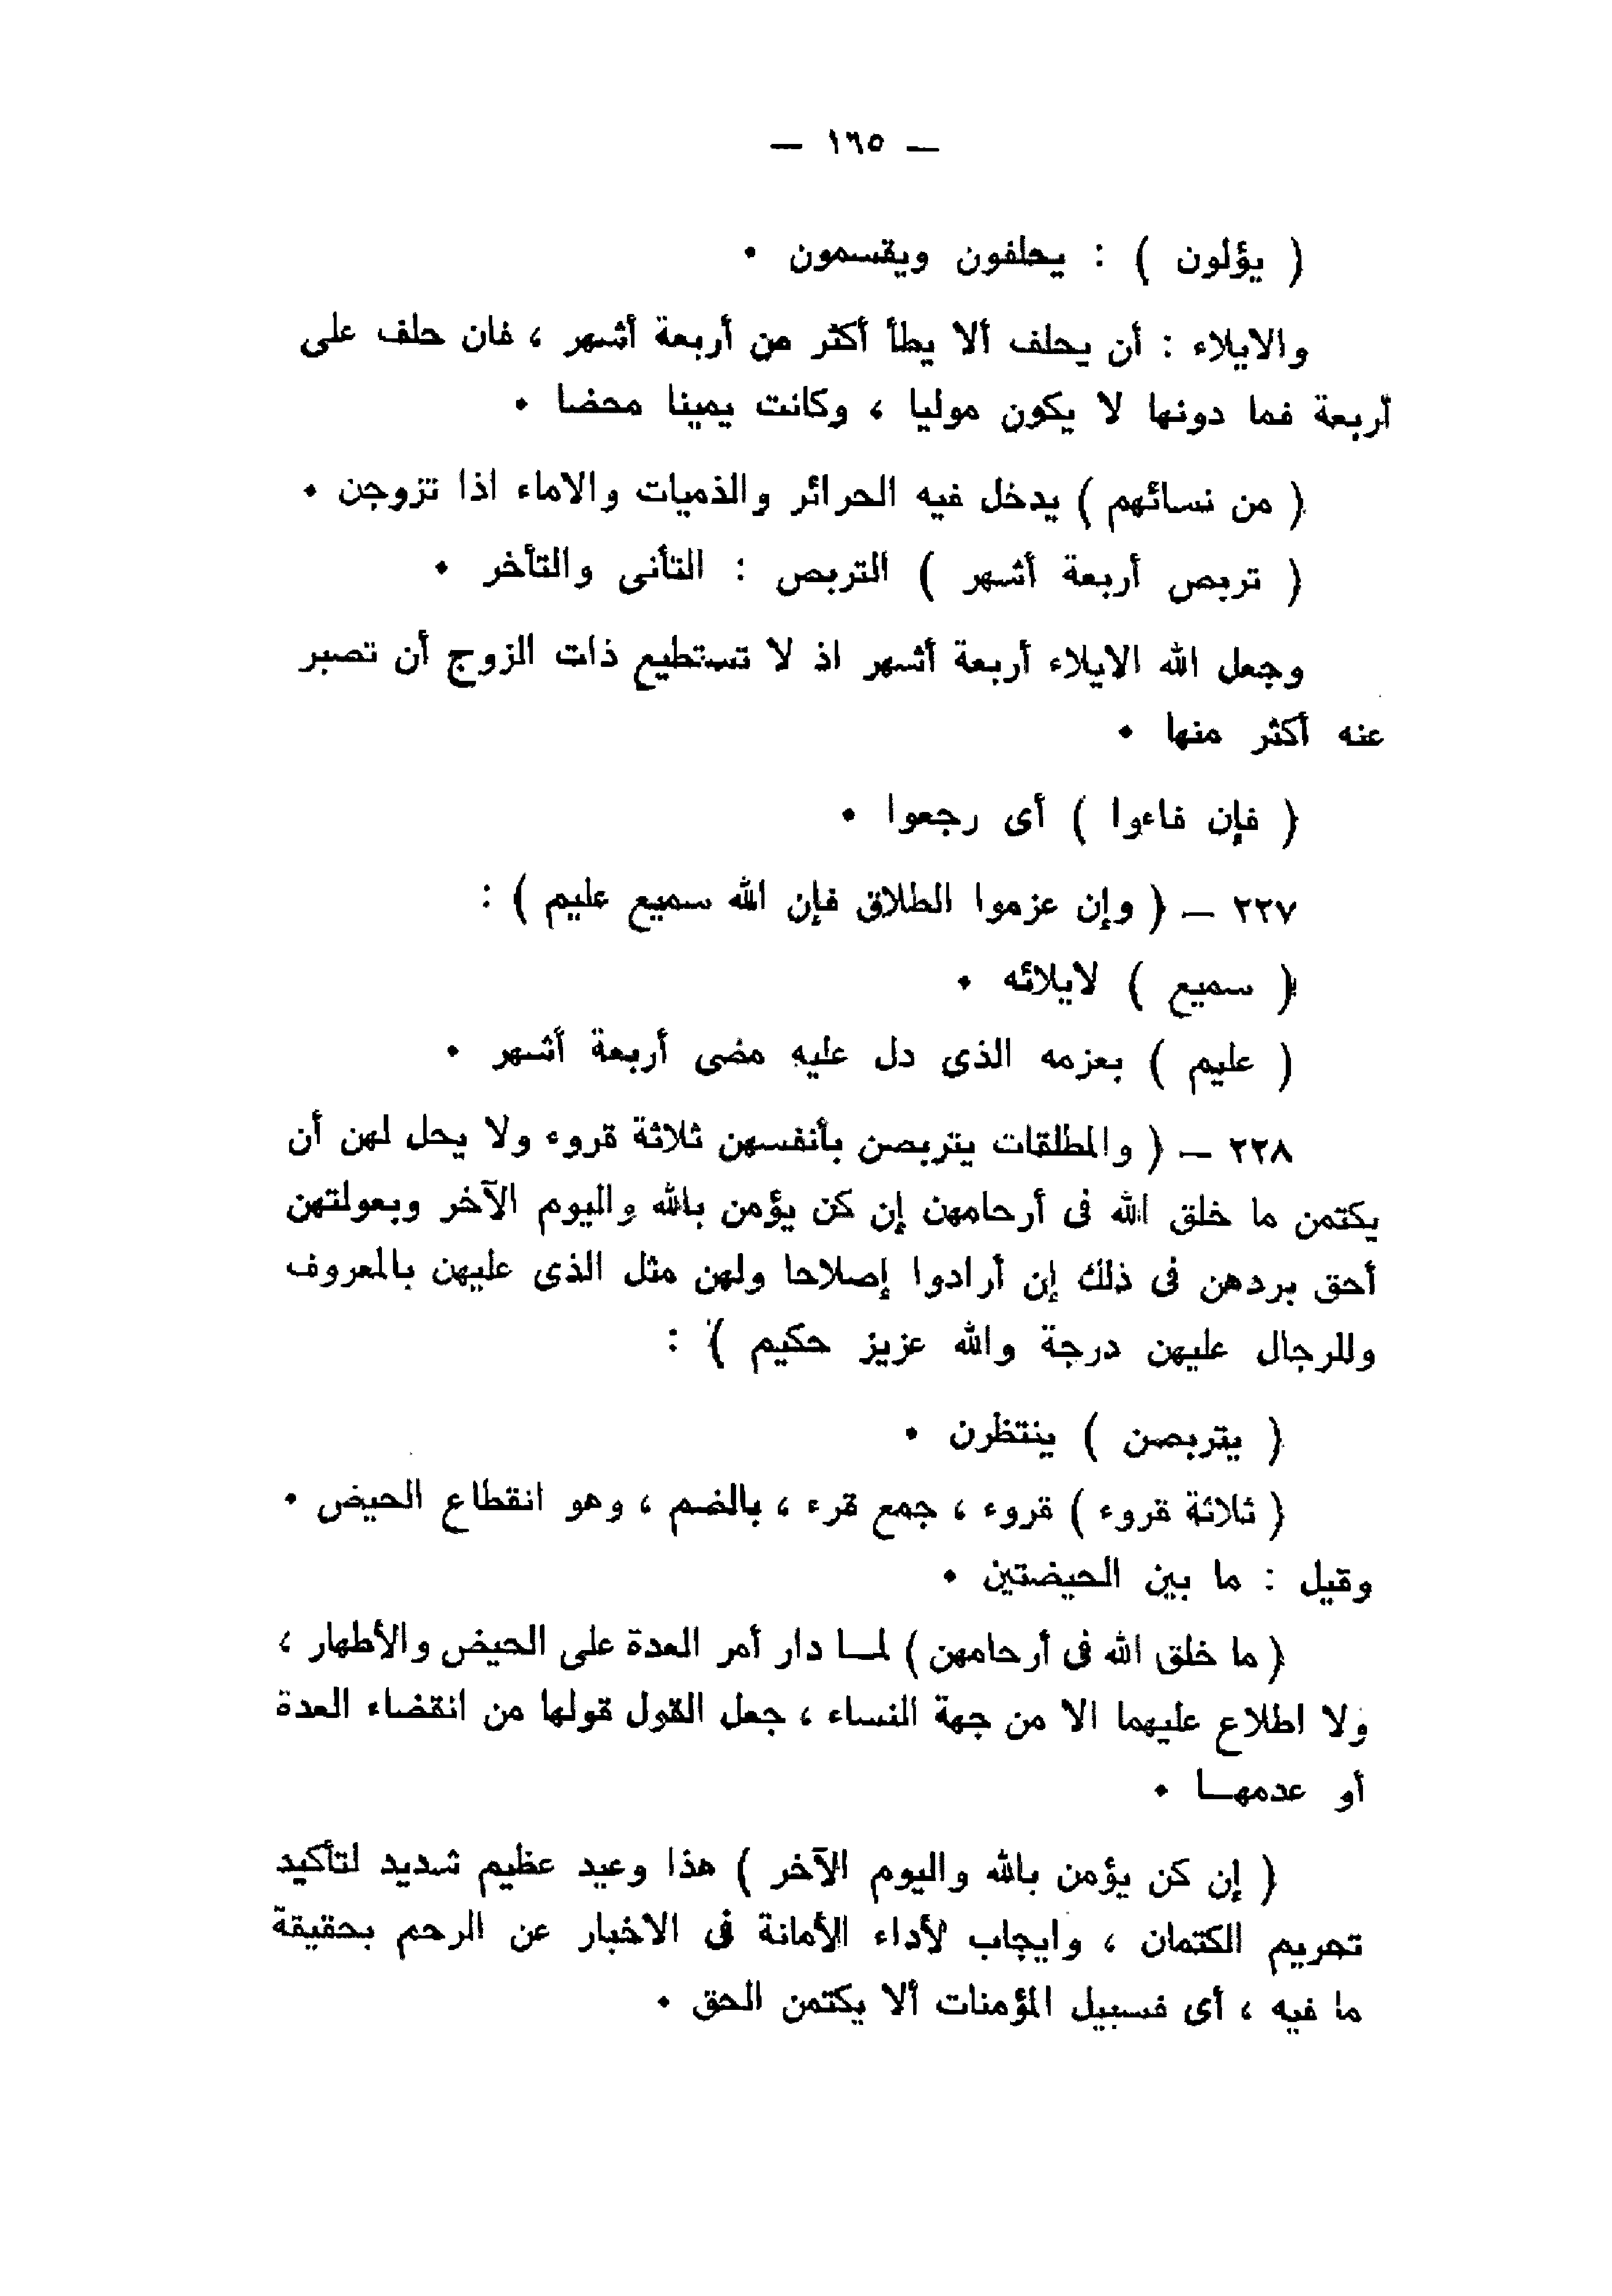 — ١٦٥ —
( يؤلون ) : يحلفون ويقسمون .
والايلاء : أن يحلف ألا يطأ أكثر من أربعة أشهر ، فان حلف على
أربعة فما دونها لا يكون موليا ، وكانت يمينا محضا .
( من نسائهم ) يدخل فيه الحرائر والذميات والاماء اذا تزوجن .
( تربص أربعة أشهر ) التربص : التأنى والتأخر .
وجعل الله الايلاء أربعة أشهر اذ لا تستطيع ذات الزوج أن تصبر
عنه أكثر منها .
( فإن فاءوا ) أى رجعوا .
٢٢٧ — ( وإن عزموا الطلاق فإن الله سميع عليم ) :
( سميع ) لايلائه .
( عليم ) بعزمه الذى دل عليه مضى أربعة أشهر .
٢٢٨ — ( والمطلقات يتربصن بأنفسهن ثلاثة قروء ولا يحل لهن أن
يكتمن ما خلق الله فى أرحامهن إن كن يؤمن بالله واليوم الآخر وبعولتهن
أحق بردهن فى ذلك إن أرادوا إصلاحا ولهن مثل الذى عليهن بالمعروف
وللرجال عليهن درجة والله عزيز حكيم ) :
( يتربصن ) ينتظرن .
( ثلاثة قروء ) قروء ، جمع قرء ، بالضم ، وهو انقطاع الحيض .
وقيل : ما بين الحيضتين .
( ما خلق الله فى أرحامهن ) لمـا دار أمر العدة على الحيض والأطهار ،
ولا اطلاع عليهما الا من جهة النساء ، جعل القول قولها من انقضاء العدة
أو عدمهـا .
( إن كن يؤمن بالله واليوم الآخر ) هذا وعيد عظيم شديد لتأكيد
تحريم الكتمان ، وايجاب لأداء الأمانة فى الاخبار عن الرحم بحقيقة
ما فيه ، أى فسبيل المؤمنات ألا يكتمن الحق .